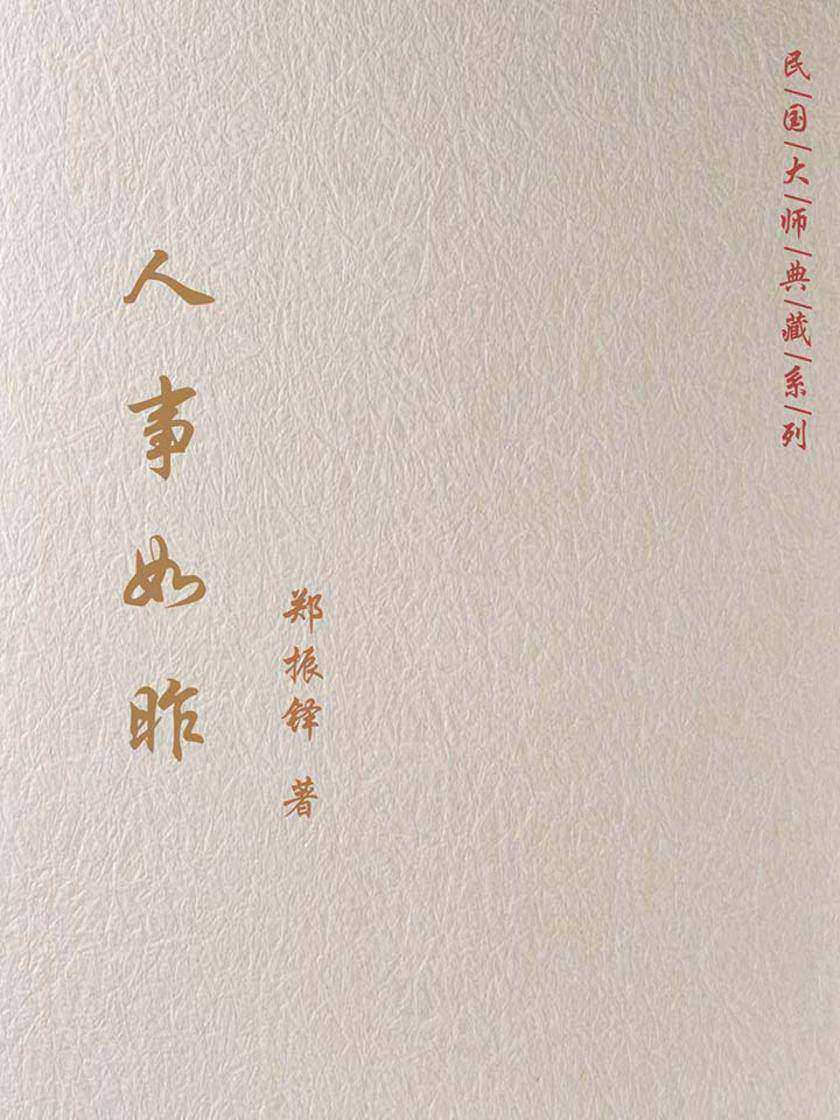 民|国|大|师|典|藏|系|列
人事如昨
郑振铎 著